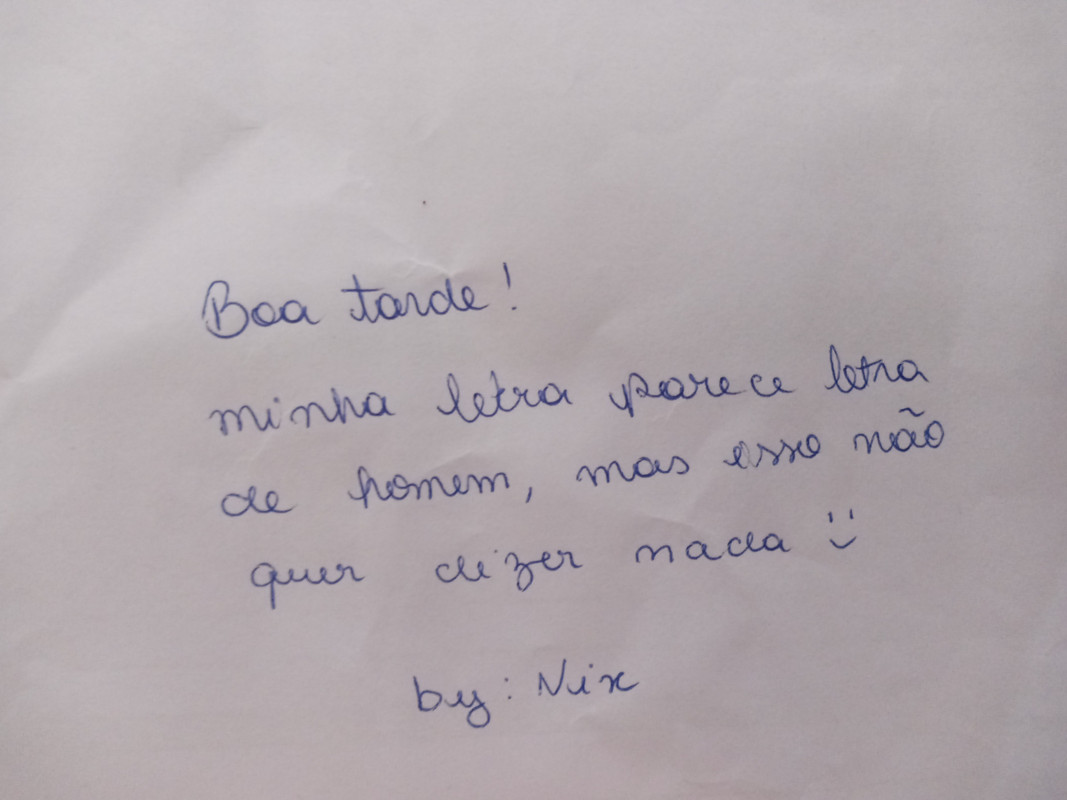 Boa tarde!
minha letra parece letra
de homem, mas isso não
quer dizer nada :)
by: Nix